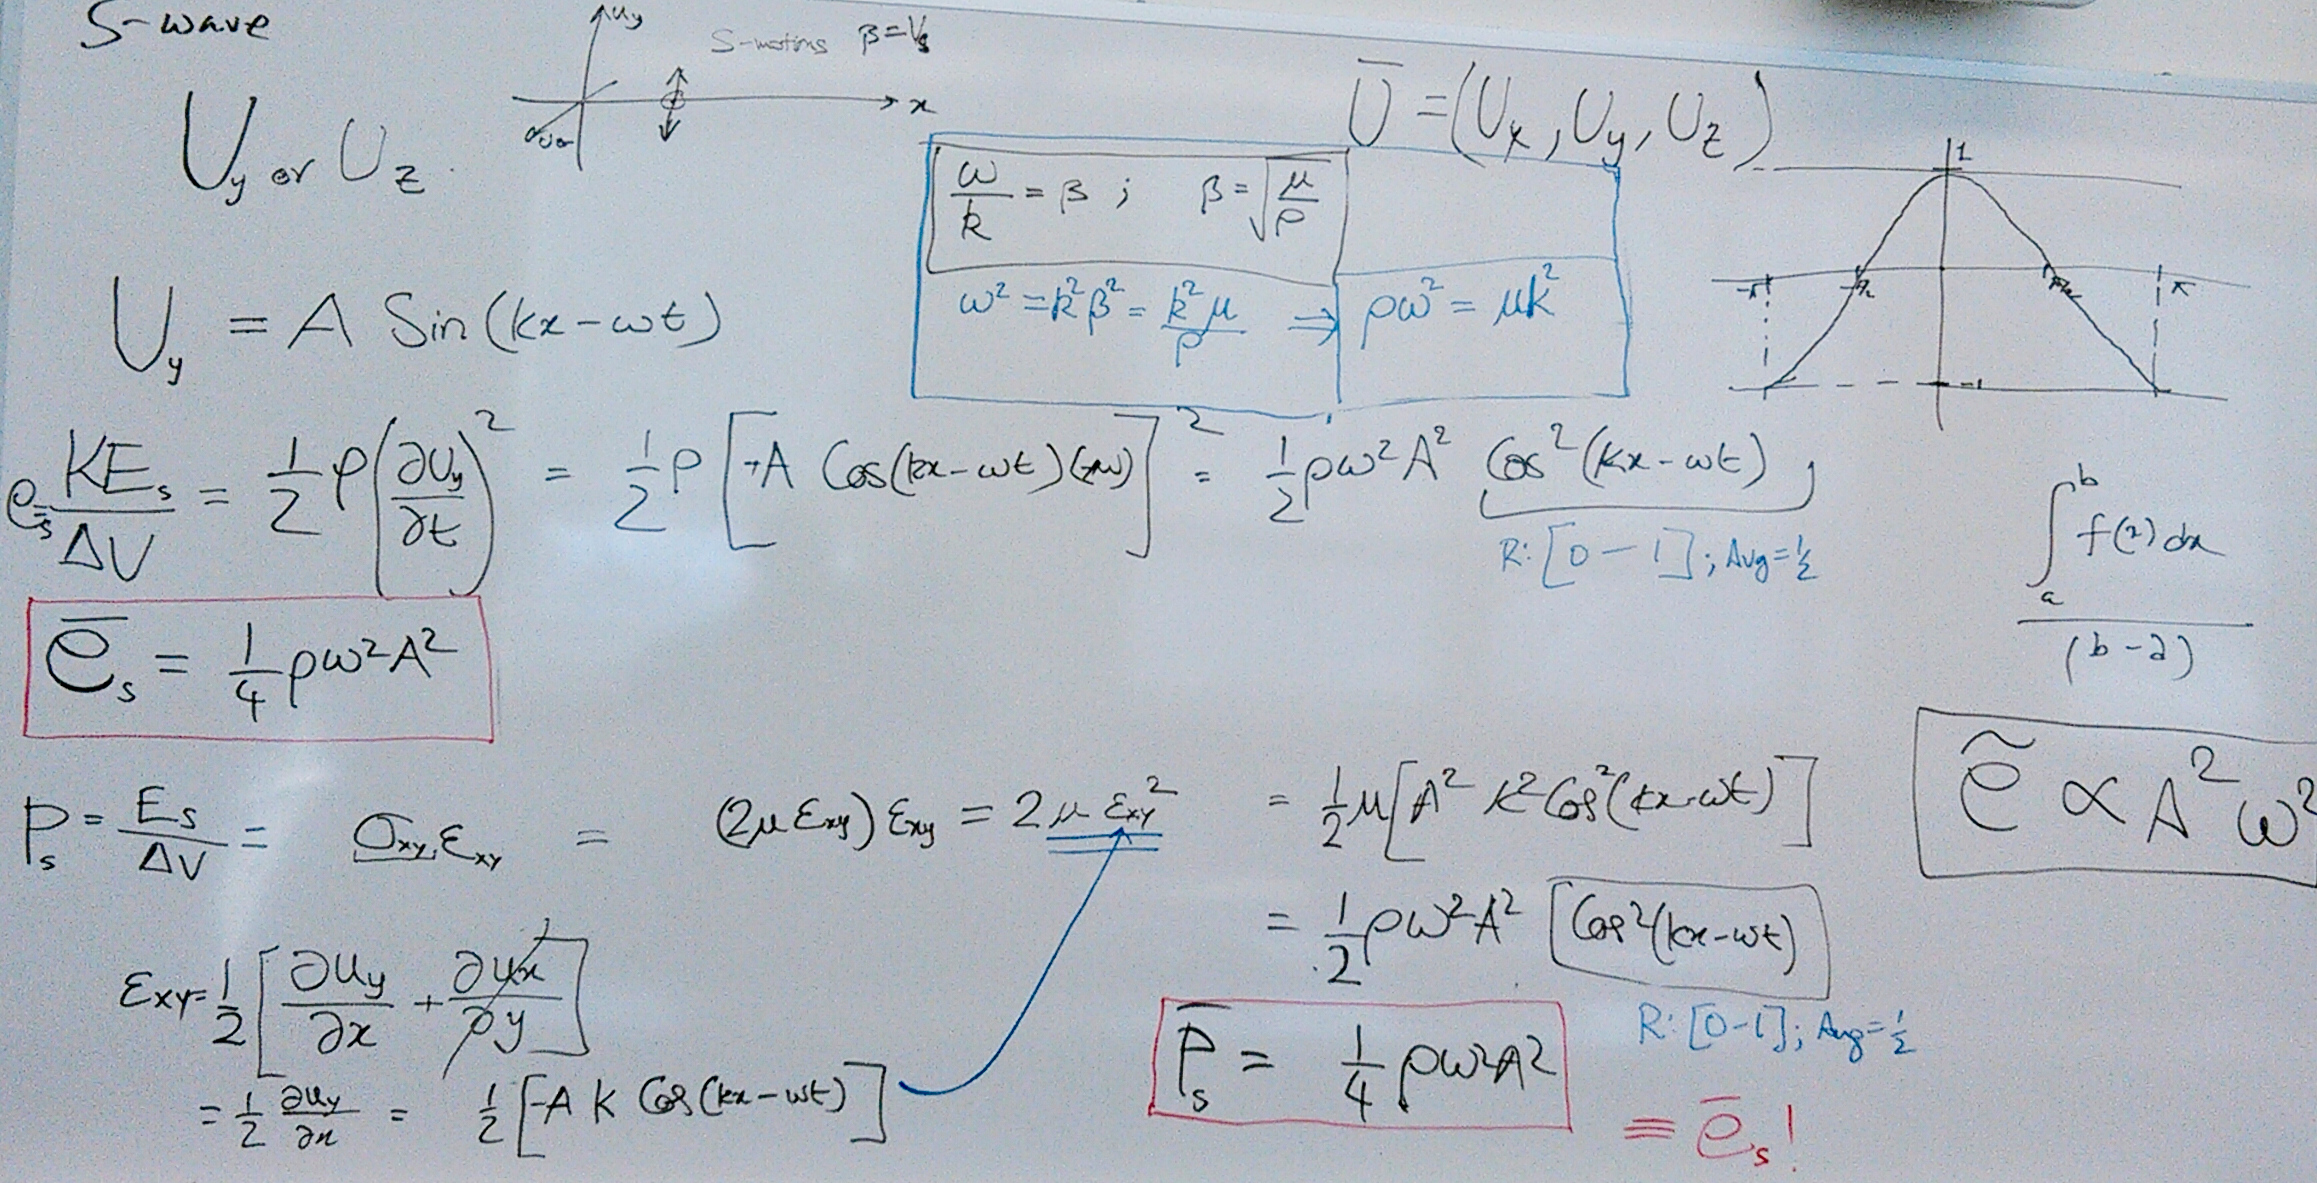 S-wave
uy
S-motions β=Vs
x
Uy or Uz
Ū = (Ux, Uy, Uz)
ω/k = β ; β = √(μ/ρ)
ω² = k²β² = k²μ/ρ ⇒ ρω² = μk²
1
-π -π/2 π/2 π
-1
Uy = A Sin(kx-ωt)
es = KEs/ΔV = 1/2 ρ(∂Uy/∂t)² = 1/2 ρ[-A Cos(kx-ωt)(-ω)]² = 1/2 ρω²A² Cos²(kx-ωt)
R: [0-1]; Avg=1/2
∫ₐᵇ f(x)dx
(b-a)
ēs = 1/4 ρω²A²
ẽ ∝ A²ω²
Ps = Es/ΔV = σxy.εxy = (2μ εxy) εxy = 2μ εxy² = 1/2 μ[A² k² Cos²(kx-ωt)]
= 1/2 ρω²A² [Cos²(kx-ωt)]
R: [0-1]; Avg=1/2
εxy = 1/2 [∂uy/∂x + ∂ux/∂y]
= 1/2 ∂uy/∂x = 1/2 [-A K Cos(kx-ωt)]
P̄s = 1/4 ρω²A²
≡ ēs!